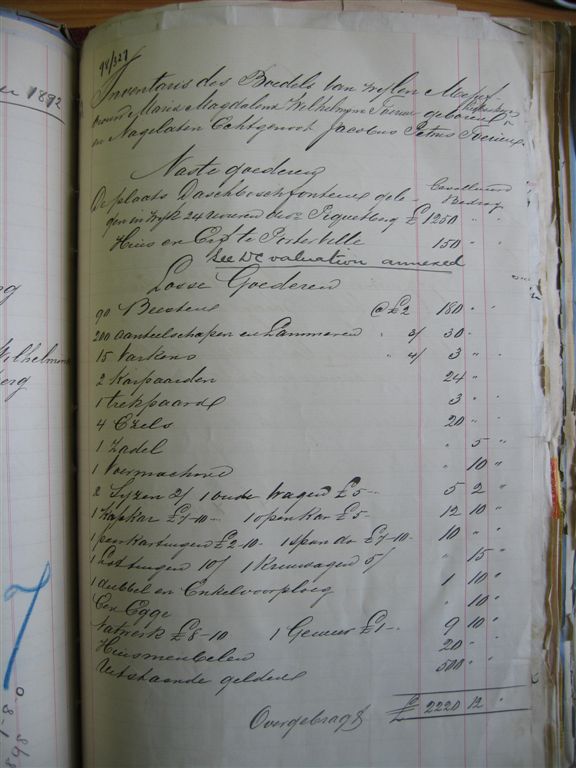 er 1892
98/327
Inventaris des Boedels van wylen Me
vrouw Maria Magdalena Wilhelmina geboren
en Nagelaten Echtgenoot Jacobus Petrus
Vaste goederen
De plaats Daschboschfontein gele-
Bedrag
gen in wyk 24 Piquetberg £ 1250 " "
Huis en Erf te Porterville 150 " "
See DC valuation annexed
Losse Goederen
90 Beesten @ £2 180 " "
200 aanteelschapen en Lammeren " 3/ 30 -
15 Varkens " 4/ 3 " "
2 Karpaarden 24 "
1 trekpaard 3 " "
4 Ezels 20 " "
1 Zadel " 5 "
1 Voermachine " 10 "
2 Syzen 2/ 1 oude wagen £5 - 5 2 "
1 kapkar £7-10- 1 openkar £5 - 12 10 "
1 paar kartuigen £2-10- 1 span do £7-10- 10 " "
1 tuigen 10/ 1 Kruiwagen 5/ " 15 "
1 dubbel en Enkelvoorploeg 1 10 "
Een Egge " 10 "
Vatwerk £8-10 1 Geweer £1- 9 10 "
Huismeubelen 20 " "
Uitstaande gelden 500 " "
Overgebragt £ 2220 12 "
Wilhelmina
erg